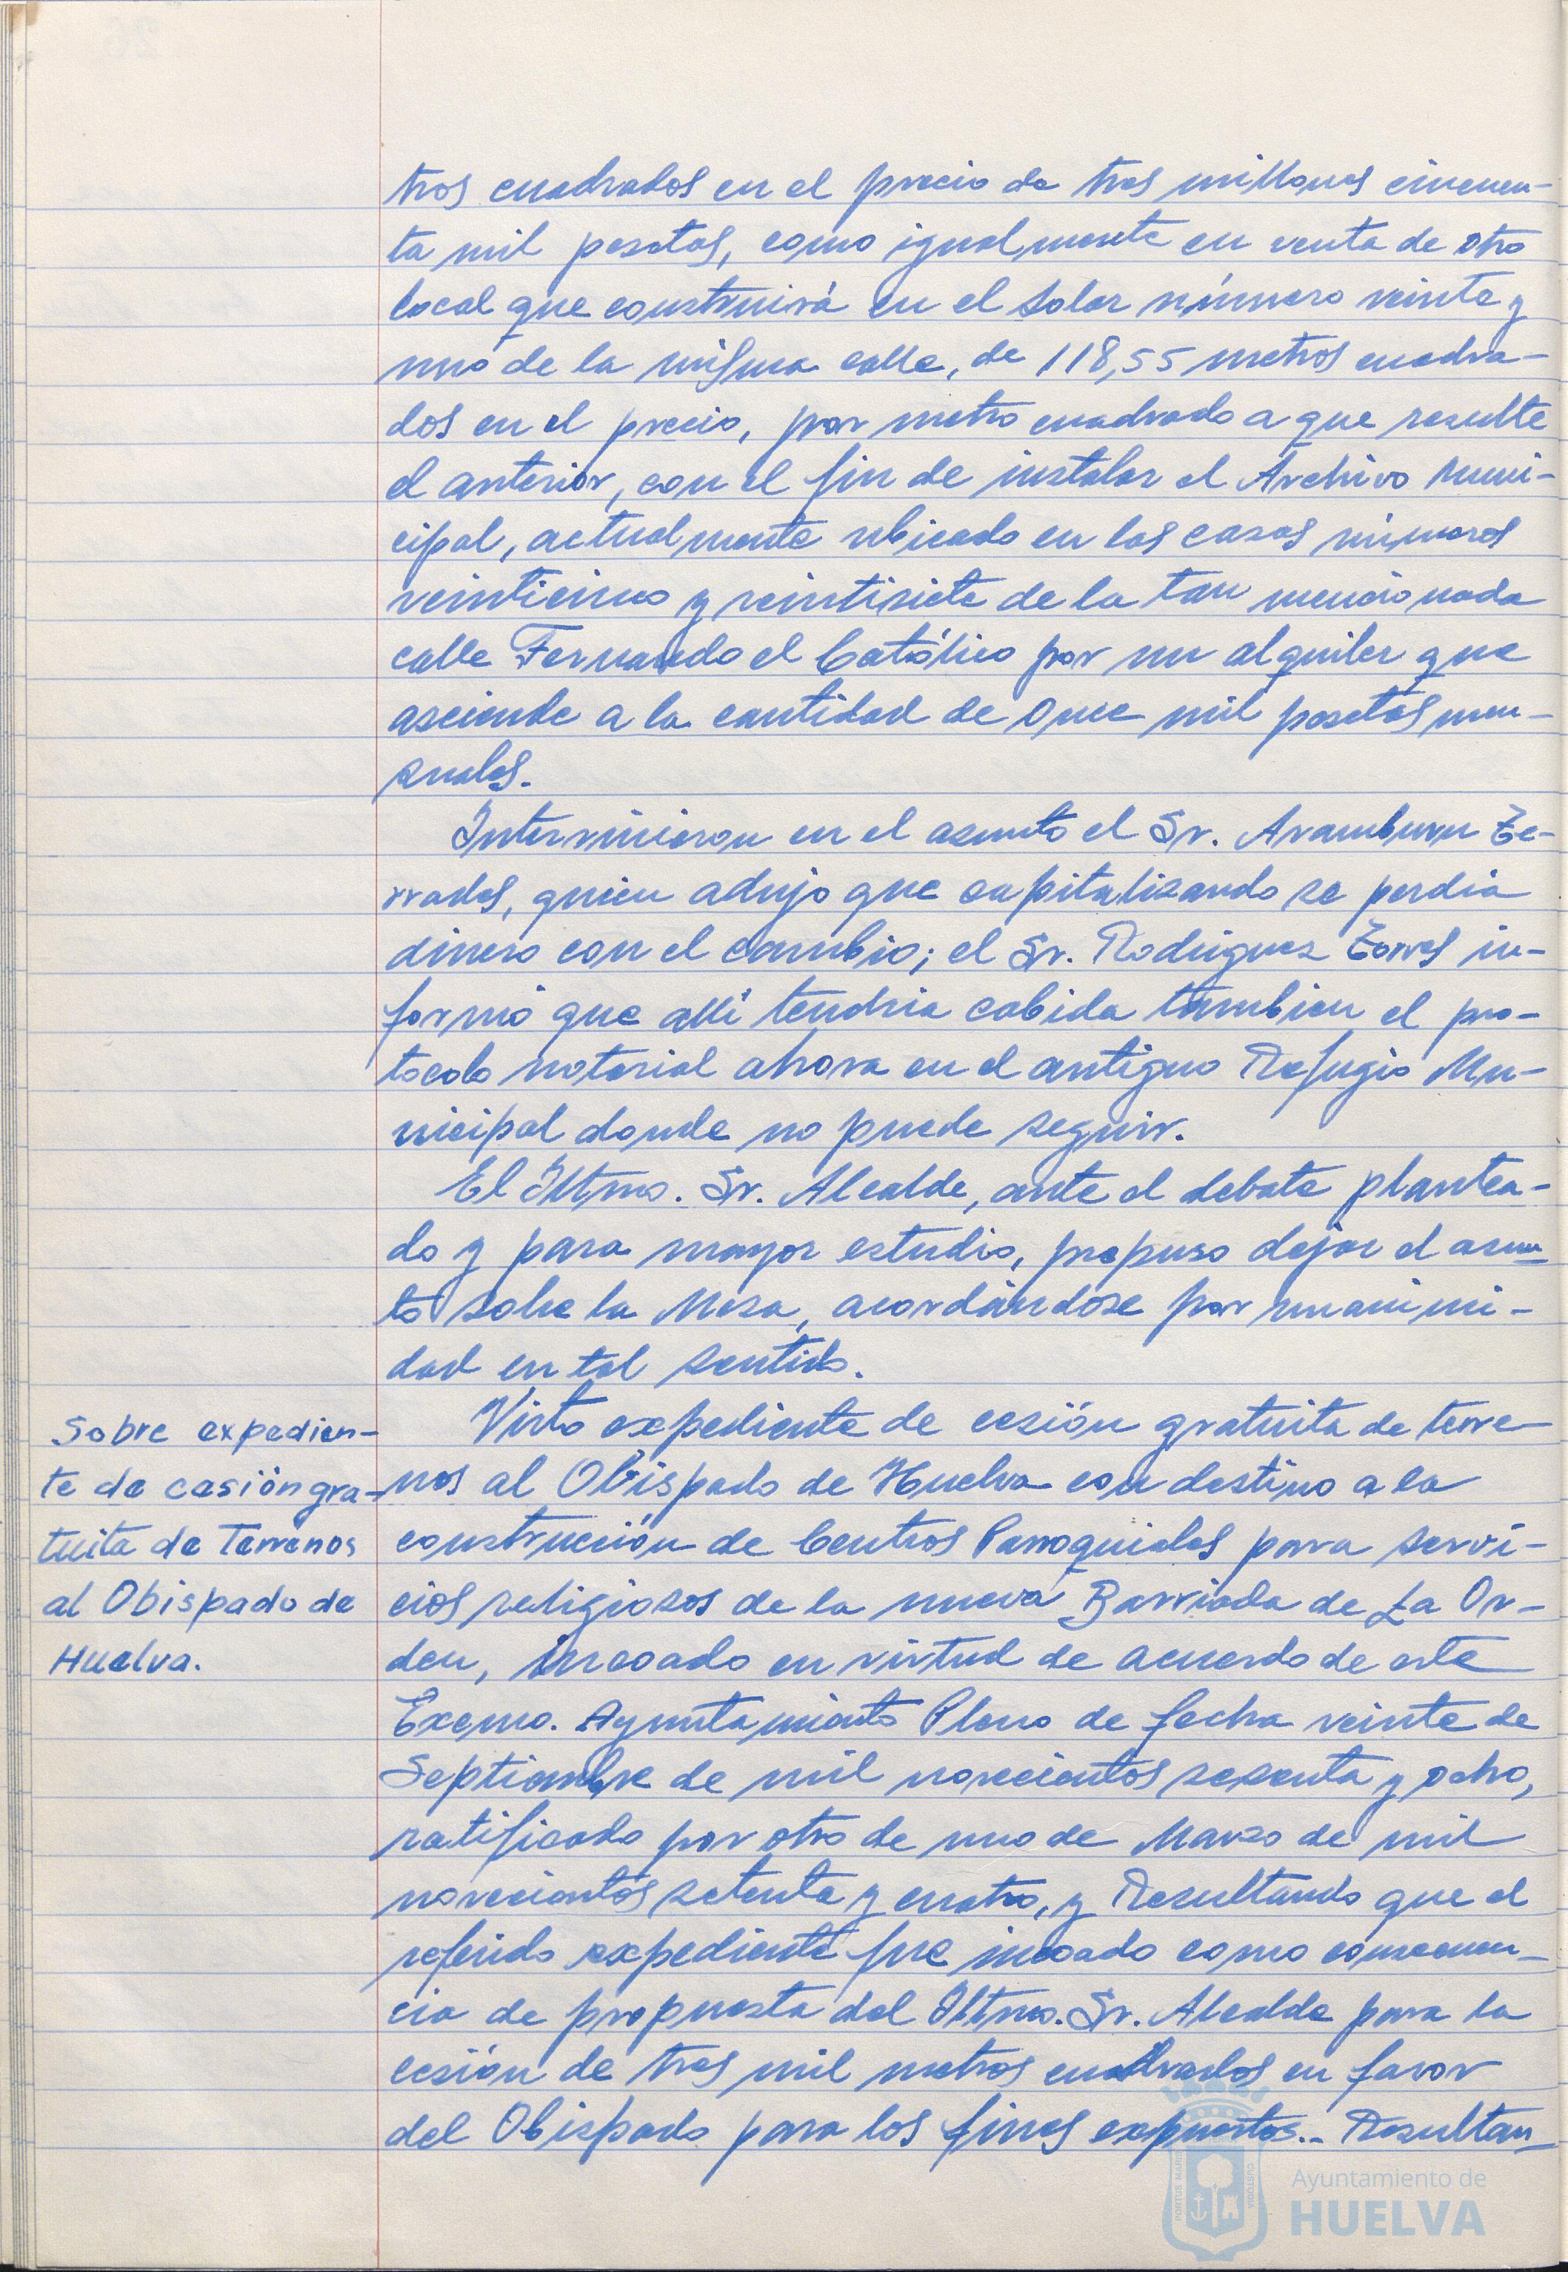 tros cuadrados en el precio de tres millones cincuen-
ta mil pesetas, como igualmente en venta de otro
local que construirá en el solar número veinte y
uno de la misma calle, de 118,55 metros cuadra-
dos en el precio, por metro cuadrado a que resulte
el anterior, con el fin de instalar el Archivo Muni-
cipal, actualmente ubicado en las casas números
veinticinco y veintisiete de la tan mencionada
calle Fernando el Católico por un alquiler que
asciende a la cantidad de once mil pesetas men-
suales.
Intervinieron en el asunto el Sr. Aramburu Te-
rrades, quien adujo que capitalizando se perdia
dinero con el cambio; el Sr. Rodriguez Torres in-
formó que allí tendria cabida tambien el pro-
tocolo notarial ahora en el antiguo Refugio Mu-
nicipal donde no puede seguir.
El Iltmo. Sr. Alcalde, ante el debate plantea-
do y para mayor estudio, propuso dejar el asun-
to sobre la Mesa, acordándose por unanimi-
dad en tal sentido.
Sobre expedien-
te de cesión gra-
tuita de Terrenos
al Obispado de
Huelva.
Visto expediente de cesión gratuita de terre-
nos al Obispado de Huelva con destino a la
construcción de Centros Parroquiales para servi-
cios religiosos de la nueva Barriada de La Or-
den, incoado en virtud de acuerdo de este
Excmo. Ayuntamiento Pleno de fecha veinte de
Septiembre de mil novecientos sesenta y ocho,
ratificado por otro de uno de Marzo de mil
novecientos setenta y cuatro, y Resultando que el
referido expediente fue incoado como consecuen-
cia de propuesta del Iltmo. Sr. Alcalde para la
cesión de tres mil metros cuadrados en favor
del Obispado para los fines expuestos.- Resultan-
PORTUS MARIS
CUSTODIA
Ayuntamiento de
HUELVA